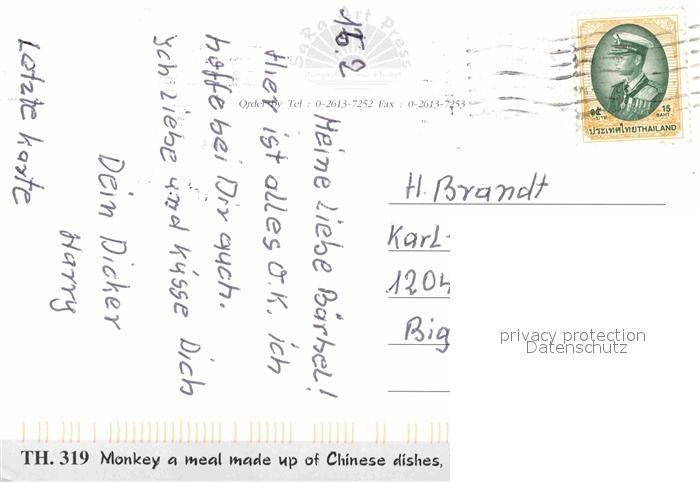 SaRa Art Press
Order by Tel : 0-2613-7252 Fax : 0-2613-7253
15.2
Meine Liebe Bärbel!
Hier ist alles O.K. ich
hoffe bei Dir auch.
Ich Liebe und Küsse Dich
Dein Dicker
Harry
Letzte Karte
๑๕ 15
บาท BAHT
ประเทศไทย THAILAND
H. Brandt
Karl-
1204
Big
privacy protection
Datenschutz
TH. 319 Monkey a meal made up of Chinese dishes,